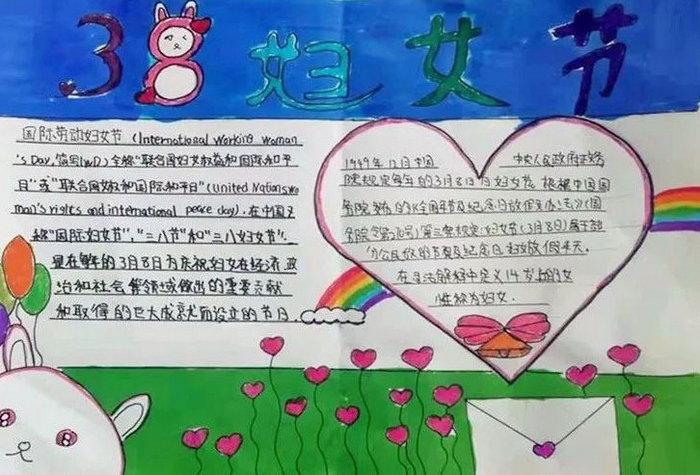 38妇女节
国际劳动妇女节 (International Working Woman
's Day, 简写IWD) 全称"联合国妇女权益和国际和平
日"或"联合国妇女权和国际和平日"(United Nations wo
man's rights and international peace day). 在中国又
称"国际妇女节","三八节"和"三八妇女节".
是在每年的3月8日为庆祝妇女在经济、政
治和社会等领域做出的重要贡献
和取得的巨大成就而设立的节日.
1949年12月中国 中央人民政府政务
院规定每年的3月8日为妇女节. 根据中国国
务院 的《全国年节及纪念日放假办法》(国
务院令第 号)第三条规定:妇女节(3月8日)属于部
分公民放假的节日及纪念日妇女放假半天.
在 法解释中定义14岁以上的女
性称为妇女.